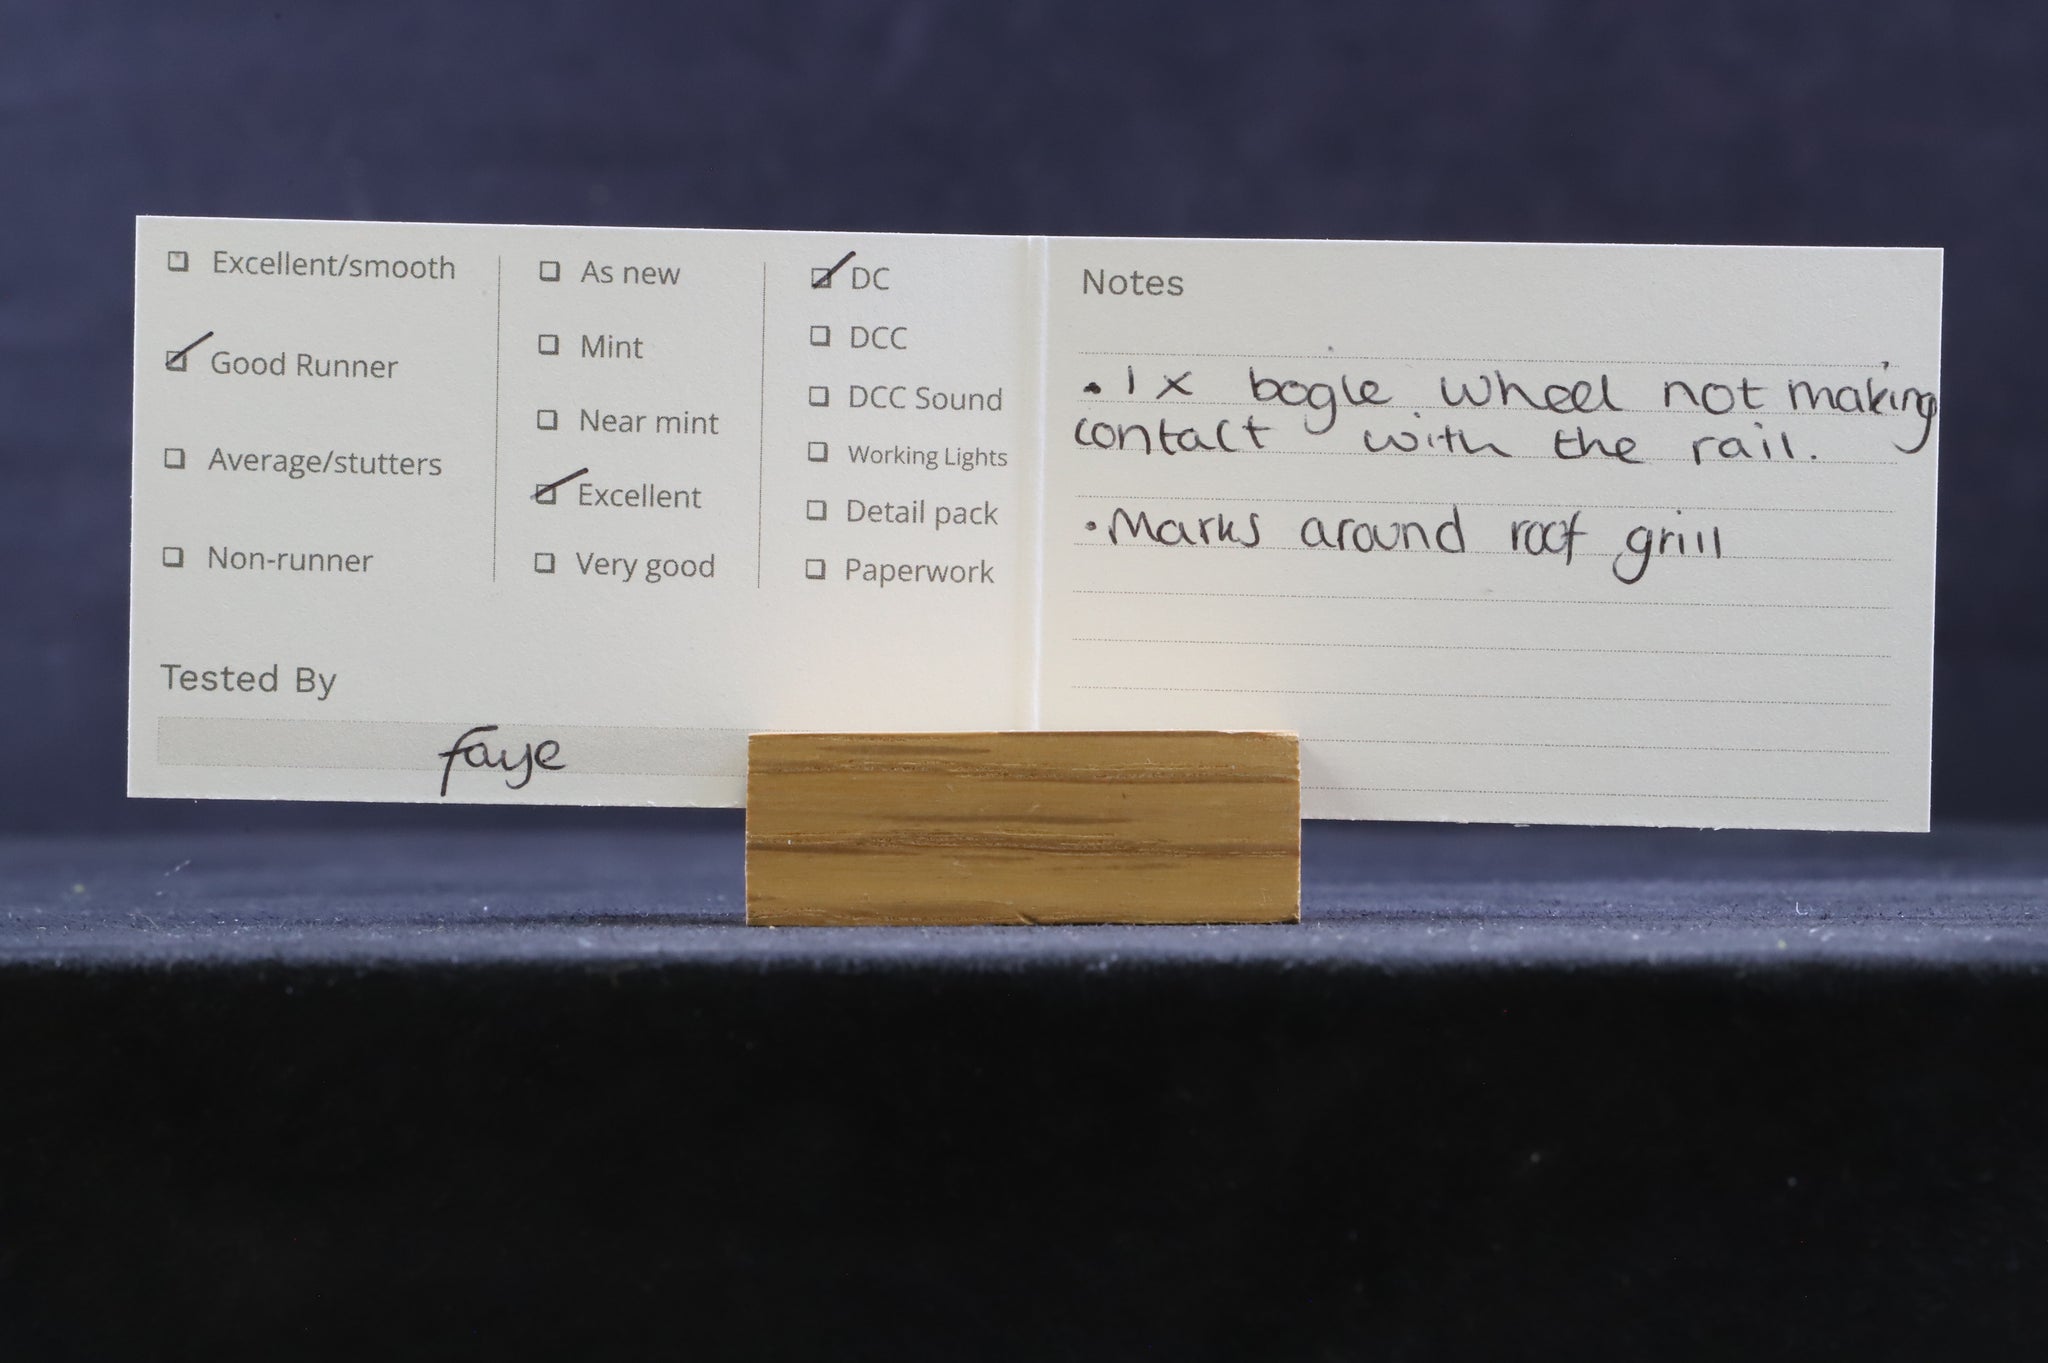 Excellent/smooth
Good Runner
Average/stutters
Non-runner
As new
Mint
Near mint
Excellent
Very good
DC
DCC
DCC Sound
Working Lights
Detail pack
Paperwork
Tested By
faye
Notes
• 1 x bogie wheel not making
contact with the rail.
• Marks around roof grill